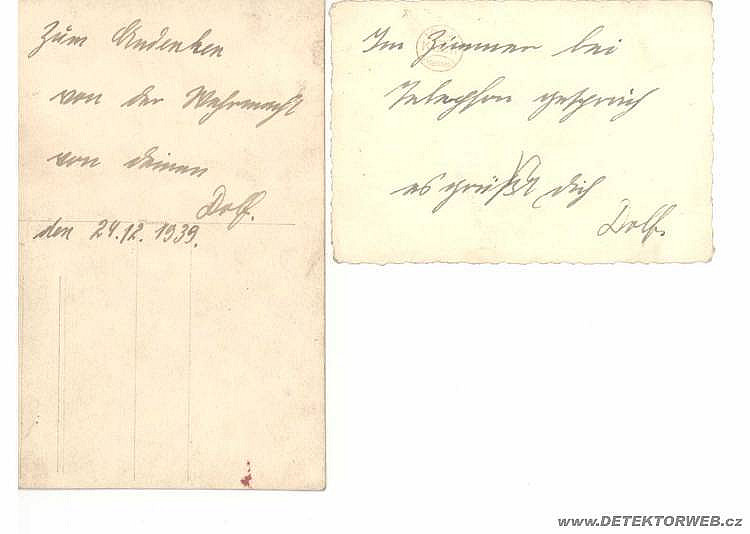 Zum Andenken
von der Wehrmacht
von deinen
Dolf.
den 24.12.1939.
Im Zimmer bei
Telephon gespräch
es grüßt dich
Dolf.
www.DETEKTORWEB.cz